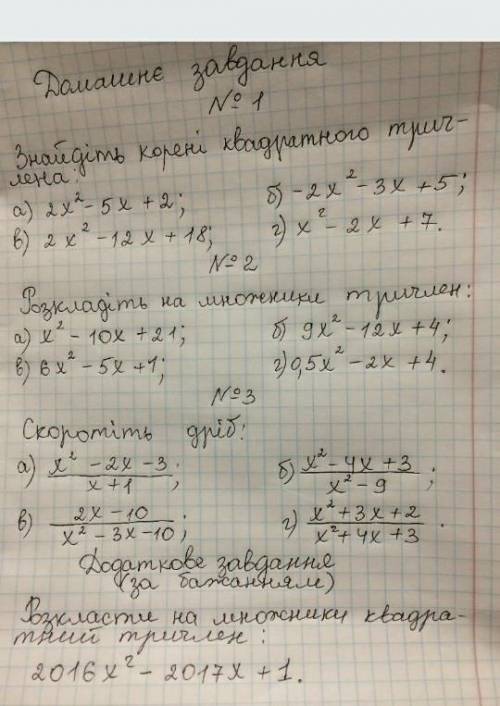 Домашнє завдання
№1
Знайдіть корені квадратного трич-
лена:
а) 2x² - 5x + 2; б) -2x² - 3x + 5;
в) 2x² - 12x + 18; г) x² - 2x + 7.
№2
Розкладіть на множники тричлен:
а) x² - 10x + 21; б) 9x² - 12x + 4;
в) 6x² - 5x + 1; г) 0,5x² - 2x + 4.
№3
Скоротіть дріб:
а) (x² - 2x - 3)/(x + 1); б) (x² - 4x + 3)/(x² - 9);
в) (2x - 10)/(x² - 3x - 10); г) (x² + 3x + 2)/(x² + 4x + 3).
Додаткове завдання
(за бажанням)
Розкласти на множники квадра-
тний тричлен:
2016x² - 2017x + 1.